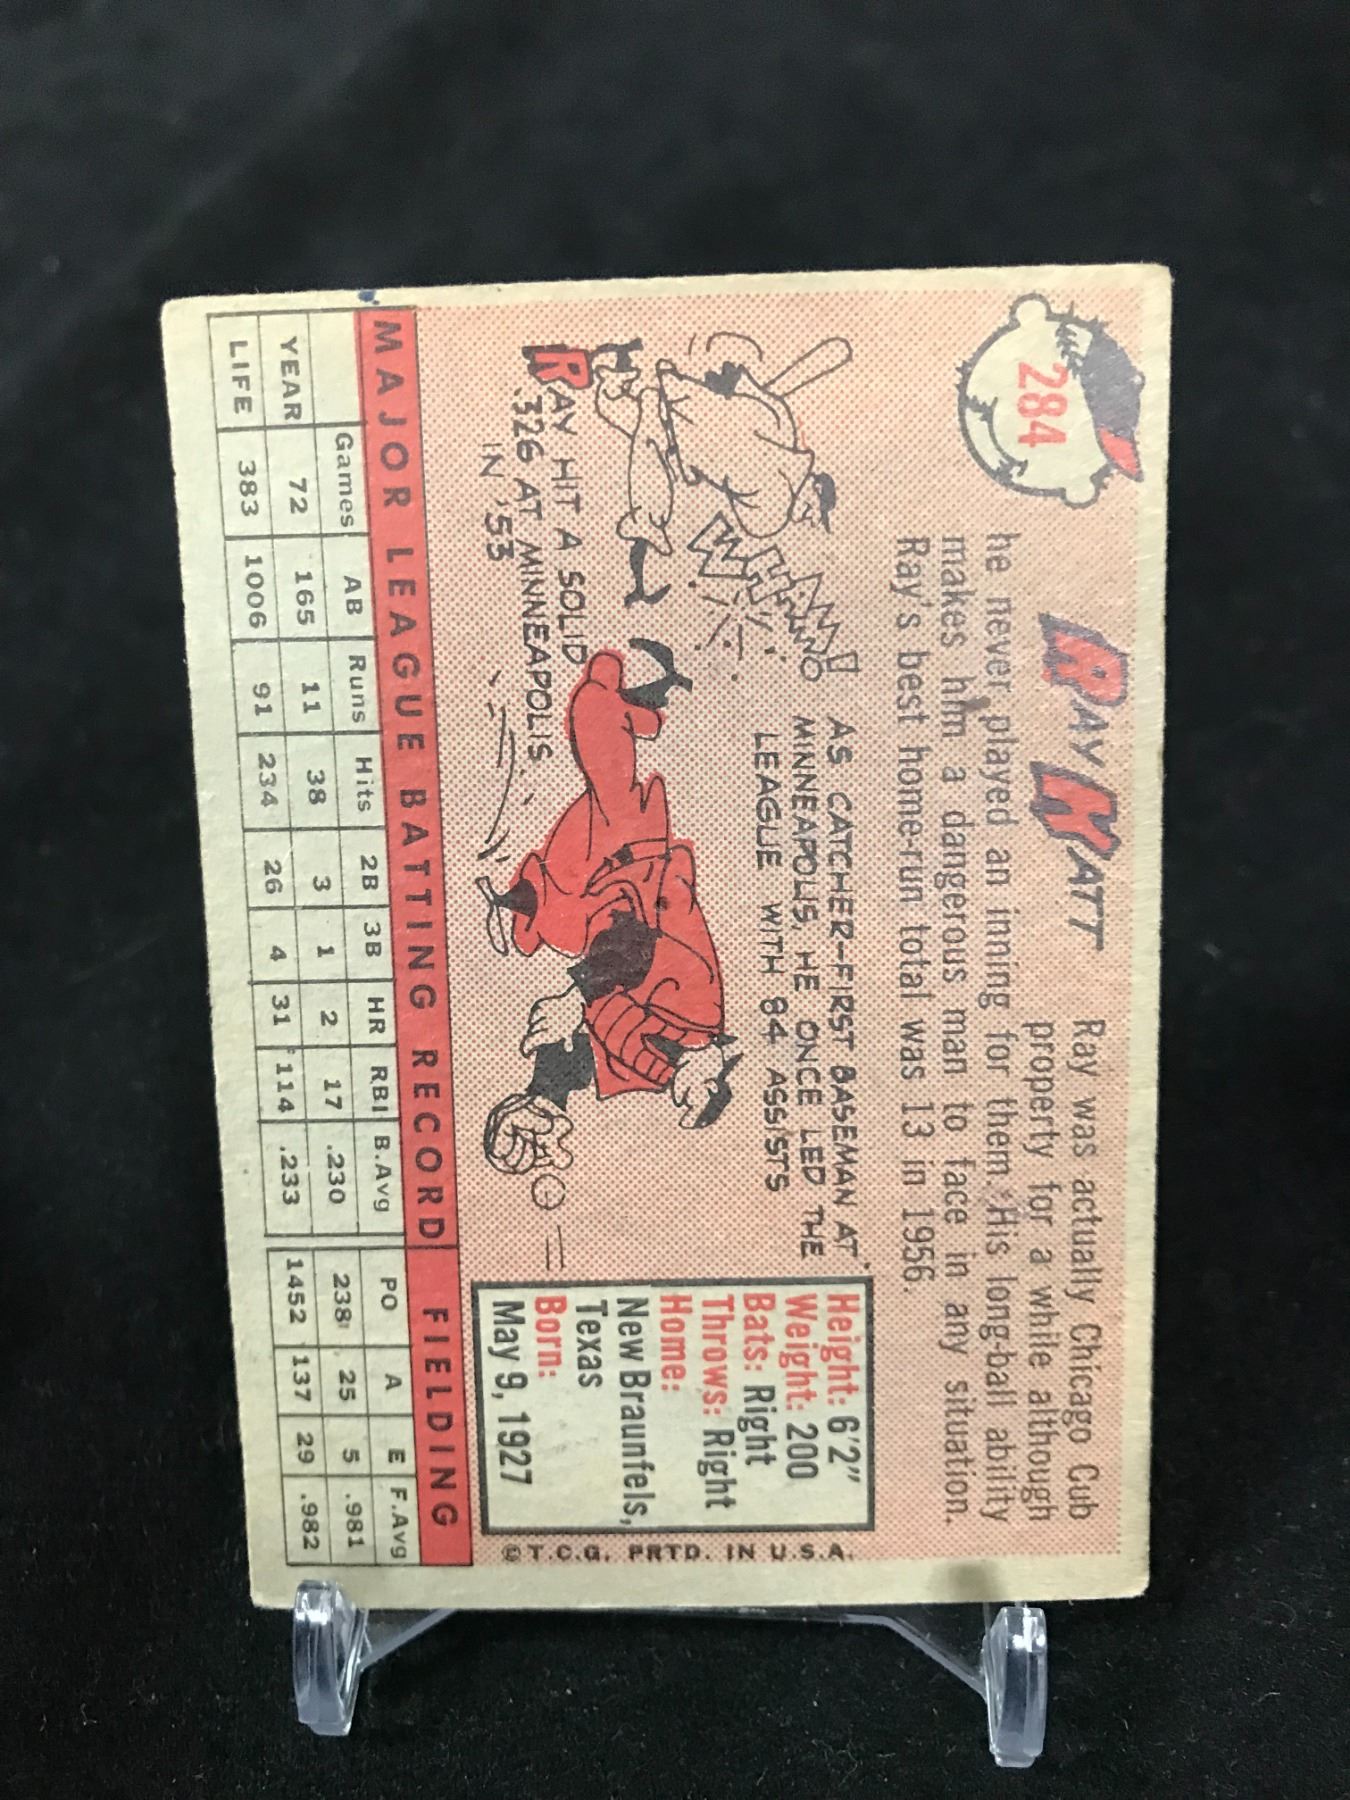 284
RAY KATT
Ray was actually Chicago Cub
property for a while although
he never played an inning for them. His long-ball ability
makes him a dangerous man to face in any situation.
Ray's best home-run total was 13 in 1956.
WHAMMO!
AS CATCHER-FIRST BASEMAN AT
MINNEAPOLIS, HE ONCE LED THE
LEAGUE WITH 84 ASSISTS
RAY HIT A SOLID
.326 AT MINNEAPOLIS
IN '53
Height: 6'2"
Weight: 200
Bats: Right
Throws: Right
Home:
New Braunfels,
Texas
Born:
May 9, 1927
©T.C.G. PRTD. IN U.S.A.
MAJOR LEAGUE BATTING RECORD FIELDING
Games AB Runs Hits 2B 3B HR RBI B.Avg PO A E F.Avg
YEAR 72 165 11 38 3 1 2 17 .230 238 25 5 .981
LIFE 383 1006 91 234 26 4 31 114 .233 1452 137 29 .982